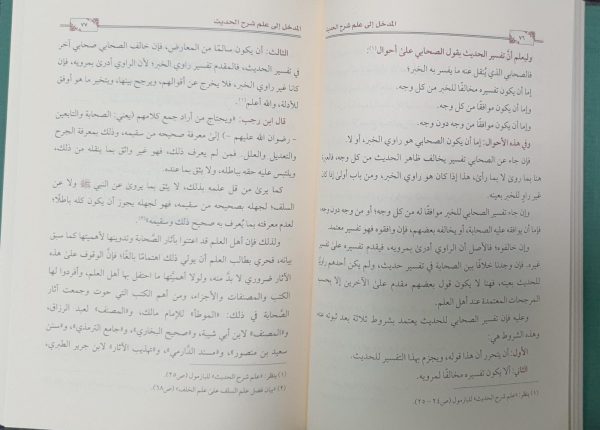 المدخل إلى علم شرح الحديث
٧٦
وليعلم أنَّ تفسير الحديث بقول الصحابي على أحوال(١):
فالصحابي الذي يُنقل عنه ما يفسر به الخبر؛
إما أن يكون تفسيره مخالفًا للخبر من كل وجه.
وإما أن يكون موافقًا من كل وجه.
وإما أن يكون موافقًا من وجه دون وجه.
وفي هذه الأحوال: إما أن يكون الصحابي هو راوي الخبر، أو لا.
فإن جاء عن الصحابي تفسير يخالف ظاهر الحديث من كل وجه، فالعبرة
هنا بما روى لا بما رأى، هذا إذا كان هو راوي الخبر، ومن باب أولى إذا كان
غير راوٍ للخبر بعينه.
وإن جاء تفسير الصحابي للخبر موافقًا له من كل وجه؛ أو من وجه دون وجه
فإما أن يوافقه عليه الصحابة، أو يخالفه بعضهم، فإن وافقوه فتفسيره معتمد
وإن خالفوه؛ فالأصل أن الراوي أدرى بمرويه، فيقدم تفسيره على تفسير
غيره. فإن وجدنا خلافًا بين الصحابة في تفسير حديث، ولم يكن أحدهم راوية
للحديث بعينه، فهنا لا يكون قول بعضهم مقدم على الآخرين إلا بحسب
المرجحات المعتمدة عند أهل العلم.
وعليه فإن تفسير الصحابي للحديث يعتمد بشروط ثلاثة بعد ثبوته عنه
وهذه الشروط هي:
الأول: أن يتحرر أن هذا قوله، ويجزم بهذا التفسير للحديث.
الثاني: ألا يكون تفسيره مخالفًا لمرويه.
(١) ينظر: «علم شرح الحديث» للبازمول (ص٢٤-٢٥).
المدخل إلى علم شرح الحديث
٧٧
الثالث: أن يكون سالمًا من المعارض، فإن خالف الصحابي صحابي آخر
في تفسير الحديث، فالمقدم تفسير راوي الخبر؛ لأن الراوي أدرى بمرويه، فإن
كانا غير راوي الخبر، فلا يخرج عن أقوالهم، ويرجح بينها، ويتخير ما هو أوفق
للأدلة، والله أعلم(١).
قال ابن رجب: «ويحتاج من أراد جمع كلامهم (يعني: الصحابة والتابعين
- رضوان الله عليهم -) إلى معرفة صحيحه من سقيمه، وذلك بمعرفة الجرح
والتعديل والعلل. فمن لم يعرف ذلك، فهو غير واثق بما ينقله من ذلك،
ويلتبس عليه حقه بباطله، ولا يثق بما عنده.
كما يرى من قل علمه بذلك، لا يثق بما يروى عن النبي ﷺ ولا عن
السلف؛ لجهله بصحيحه من سقيمه، فهو لجهله يجوز أن يكون كله باطلًا؛
لعدم معرفته بما يُعرف به صحيح ذلك وسقيمه»(٢).
ولذلك فإن أهل العلم قد اعتنوا بآثار الصَّحابة وتدوينها لأهميتها كما سبق
بيانه، فحري بطالب العلم أن يولي ذلك اهتمامًا بالغًا؛ فإنَّ الوقوف على هذه
الآثار ضروري لا بدَّ منه، ولولا أهميَّتها ما احتفل بها أهل العلم، وأفردوا لها
الكتب والمصنفات والأجزاء، ومن أهم الكتب التي حوت وجمعت آثار
الصَّحابة في ذلك: «الموطأ» للإمام مالك، و«المصنف» لعبد الرزاق،
و«المصنف» لابن أبي شيبة، و«صحيح البخاري»، و«جامع الترمذي»، و«سنن
سعيد بن منصور»، و«مسند الدَّارمي»، و«تهذيب الآثار» لابن جرير الطبري،
(١) ينظر: «علم شرح الحديث» للبازمول (ص٢٥).
(٢) «بيان فضل علم السلف على علم الخلف» (ص٦٨).